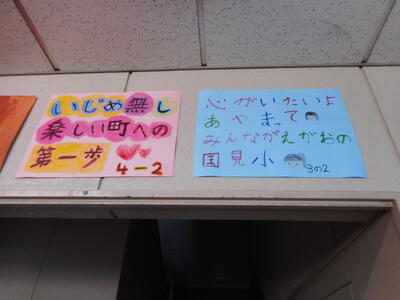 いじめ無し
楽しい町への
第一歩
4-2
心がいたいよ
あやまって
みんながえがおの
国見小
3の2